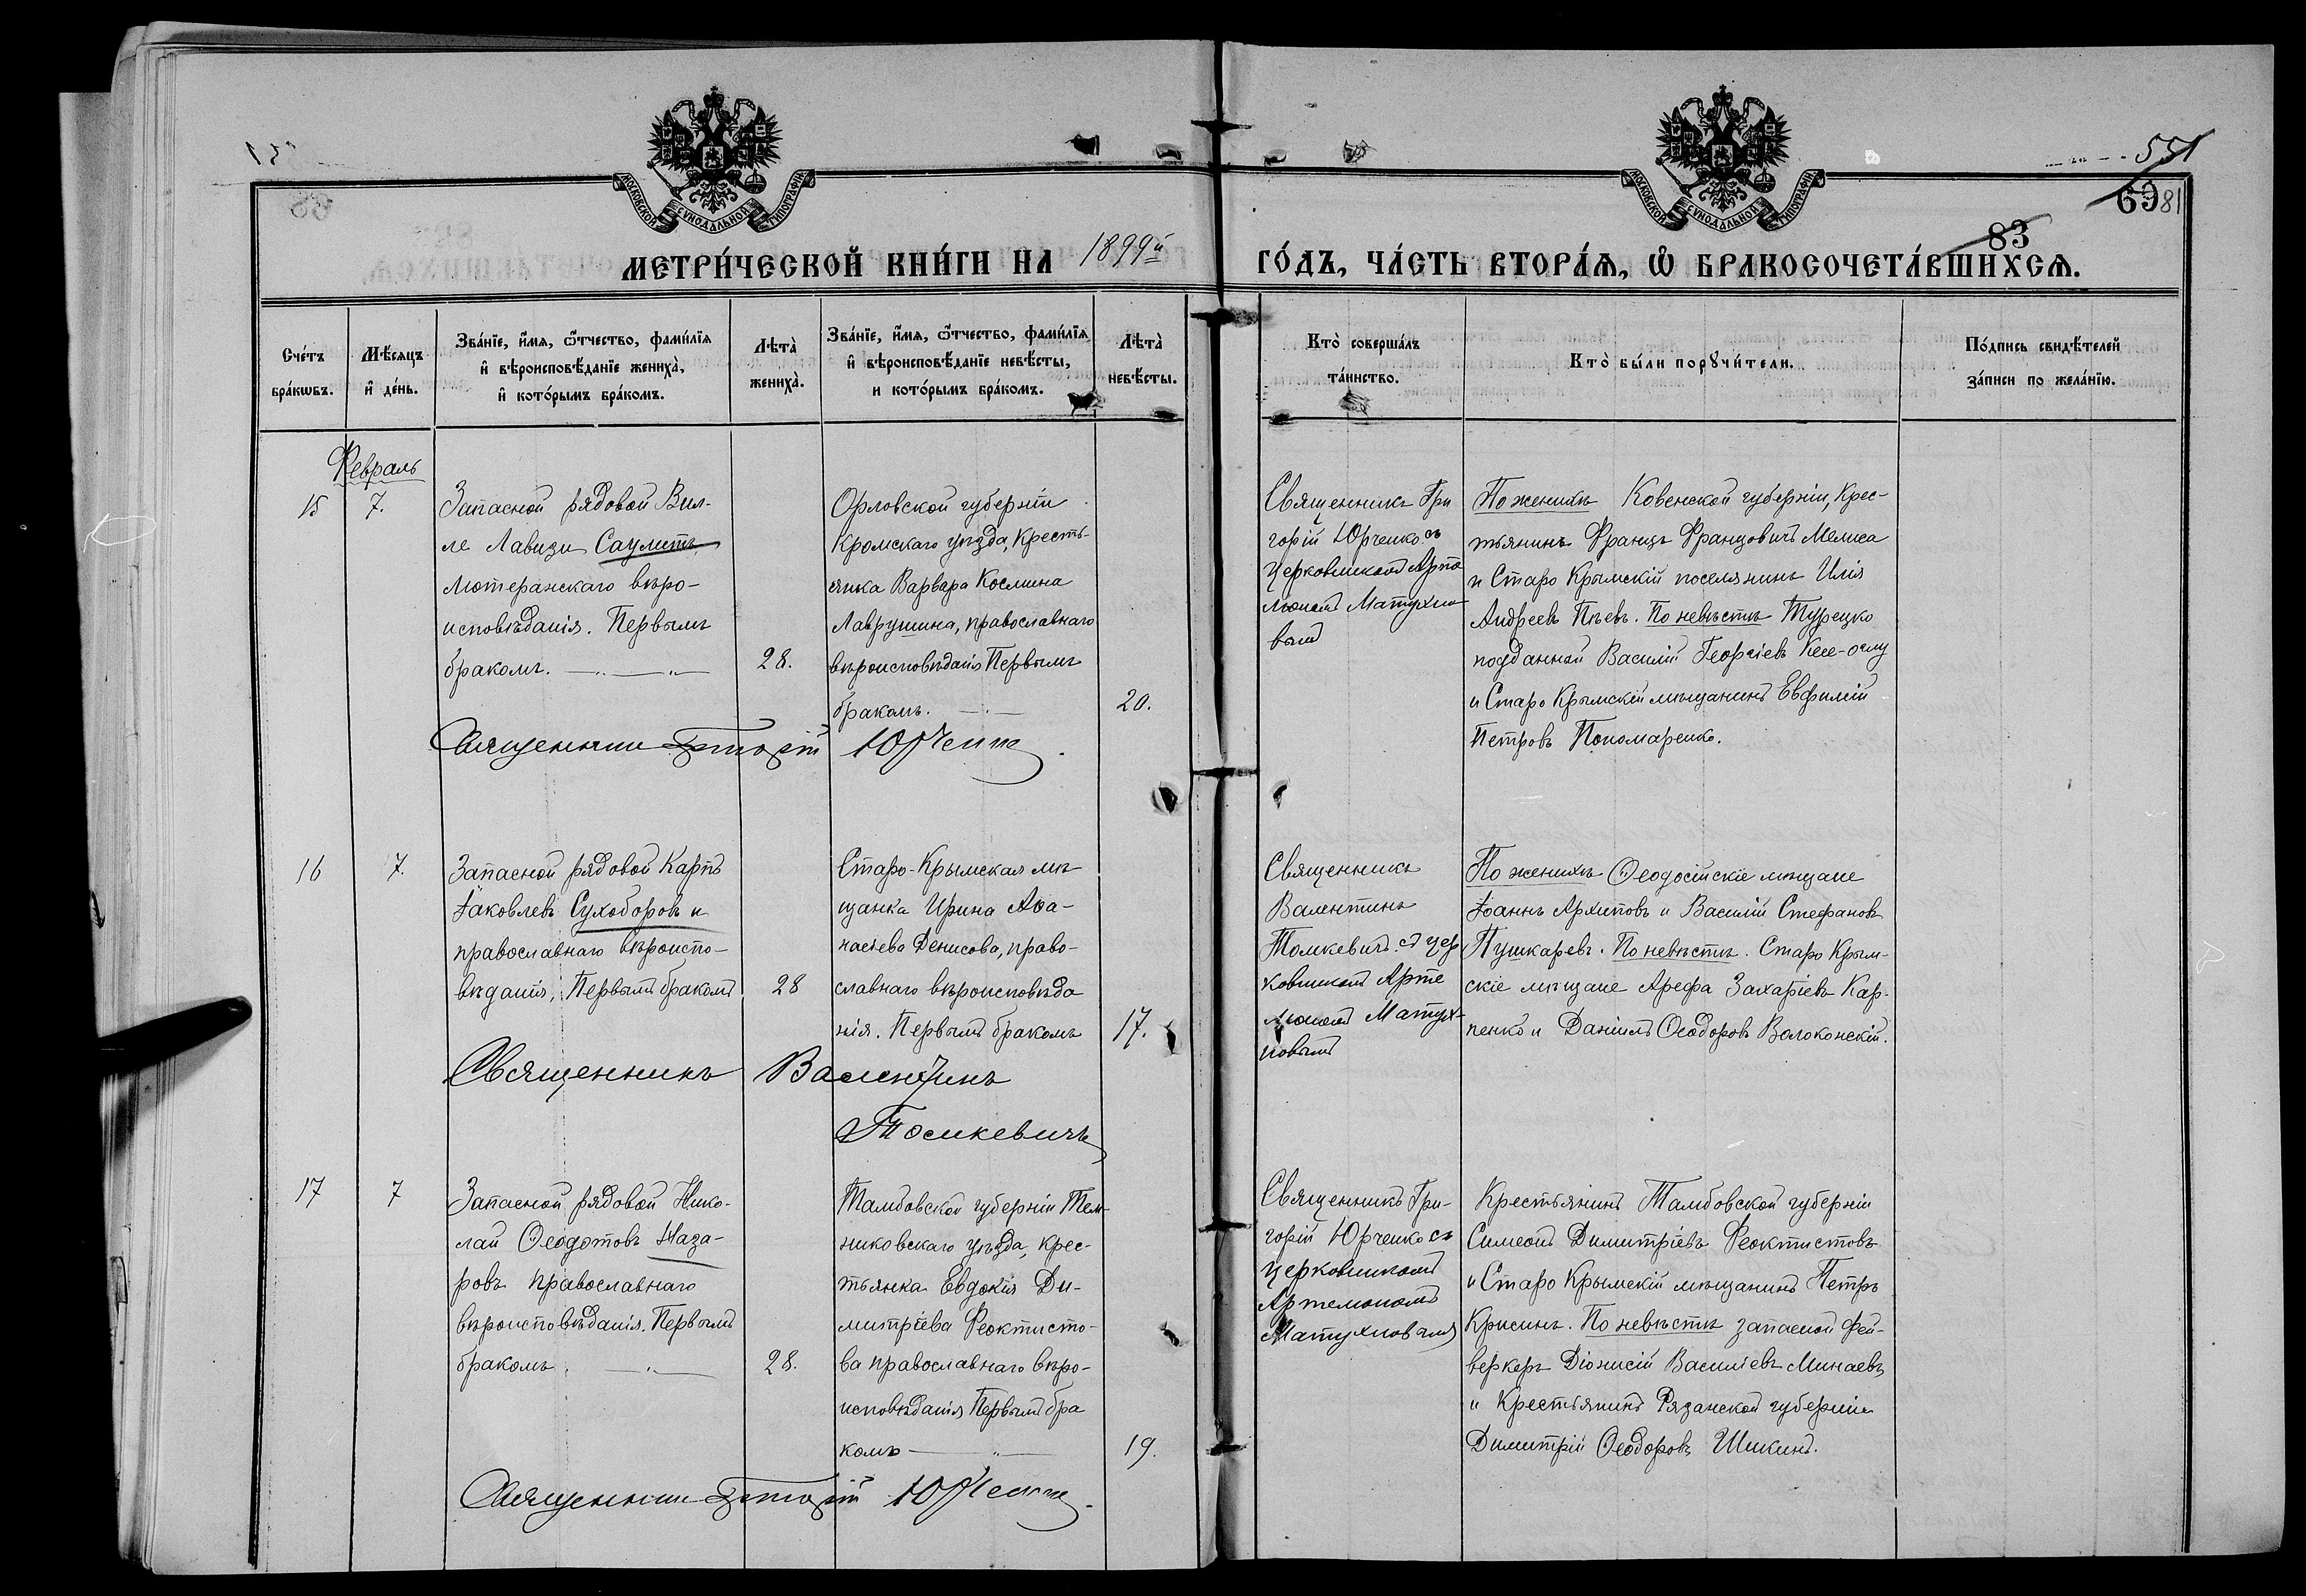 551
69 81
83
МОСКОВСКОЙ СѴНОДАЛЬНОЙ ТИПОГРАФІИ
МОСКОВСКОЙ СѴНОДАЛЬНОЙ ТИПОГРАФІИ
МЕТРИ́ЧЕСКОЙ КНИ́ГИ НА 1899й ГО́ДЪ, ЧА́СТЬ ВТОРА́Ѧ, Ѽ БРАКОСОЧЕТА́ВШИХСѦ.
Сче́тъ
бра́кѡвъ.
Мѣ́сяцъ
и҆ де́нь.
Зва́нїе, и҆́мя, ѻ҆́тчество, фами́лїя
и҆ вѣроисповѣ́данїе жениха̀,
и҆ кото́рымъ бра́комъ.
Лѣта̀
жениха̀.
Зва́нїе, и҆́мя, ѻ҆́тчество, фами́лїя
и҆ вѣроисповѣ́данїе невѣ́сты,
и кото́рымъ бра́комъ.
Лѣта̀
невѣ́сты.
Кто̀ соверша́лъ
та́инство.
Кто̀ бы́ли порꙋчи́тели.
По́дпись свидѣ́телей
за́писи по жела́нїю.
Февраль
15
7.
Запасной рядовой Вил-
ле Лавизи Саулитъ
лютеранскаго вѣро-
исповѣданія. Первымъ
бракомъ.
28.
Орловской губерніи
Кромскаго уѣзда, кресть-
янка Варвара Космина
Лаврушина, православнаго
вѣроисповѣданія Первымъ
бракомъ.
20.
Священникъ Гри
горій Юрченко съ
церковникомъ Арте
мономъ Матухно
вымъ
По женихѣ Ковенской губерніи, крес-
тьянинъ Францъ Францовичъ Мелиса
и Старо Крымскій поселянинъ Илія
Андреевъ Пѣевъ. По невѣстѣ Турецко
подданный Василій Георгіевъ Кесе-оглу
и Старо Крымскій мѣщанинъ Евфимій
Петровъ Пономаренко.
Священникъ Григорій Юрченко
16
7.
Запасной рядовой Карпъ
Іаковлевъ Сухоборовъ и
православнаго вѣроиспо-
вѣданія, Первымъ бракомъ
28
Старо-Крымская мѣ
щанка Ирина Аѳа-
насіева Денисова, право-
славнаго вѣроисповѣда
нія. Первымъ бракомъ
17.
Священникъ
Валентинъ
Томкевичъ съ цер
ковникомъ Арте
мономъ Матух-
новымъ
По женихѣ Ѳеодосійскіе мѣщане
Іоаннъ Архиповъ и Василій Стефановъ
Пушкаревъ. По невѣстѣ. Старо Крым-
скіе мѣщане Арефа Захаріевъ Кар-
пенко и Даніилъ Ѳеодоровъ Волоконскій.
Священникъ Валентинъ
Томкевичъ
17
7
Запасной рядовой Нико-
лай Ѳеодотовъ Наза-
ровъ православнаго
вѣроисповѣданія. Первымъ
бракомъ
28.
Тамбовской губерніи Тем-
никовскаго уѣзда, крес-
тьянка Евдокія Ди-
митріева Феоктисто-
ва православнаго вѣро-
исповѣданія Первымъ бра
комъ
19.
Священникъ Гри-
горій Юрченко съ
церковникомъ
Артемономъ
Матухновымъ
Крестьянинъ Тамбовской губерніи
Симеонъ Димитріевъ Феоктистовъ
и Старо Крымскій мѣщанинъ Петръ
Крисинъ. По невѣстѣ запасной фей-
веркеръ Діонисій Василіевъ Минаевъ
и Крестьянинъ Рязанской губерніи
Димитрій Ѳеодоровъ Шикинъ.
Священникъ Григорій Юрченко